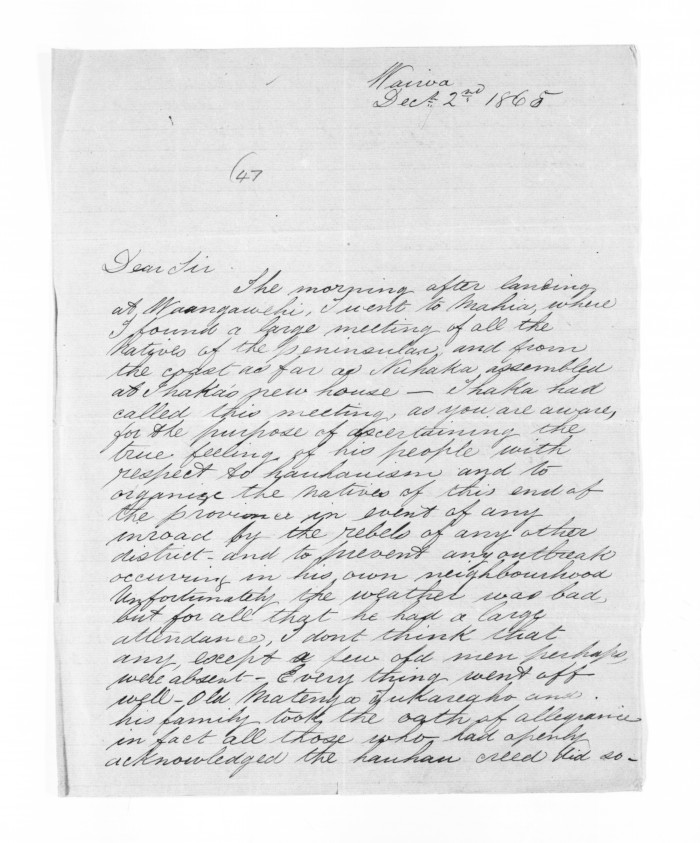 Wairoa
Dec.r 2nd 1865
(47
Dear Sir
The morning after landing
at Waangawehi, I went to Mahia, where
I found a large meeting of all the
Natives of the peninsular, and from
the coast as far as Nuhaka, assembled
at Ihaka's new house — Ihaka had
called this meeting, as you are aware,
for the purpose of ascertaining the
true feeling of his people with
respect to hauhauism and to
organize the natives of this end of
the province in event of any
inroad by the rebels of any other
district - and to prevent any outbreak
occuring in his own neighbourhood
Unfortunately the weather was bad,
but for all that he had a large
attendance, I dont think that
any except a few old men perhaps,
were absent - Every thing went off
well - Old Matenga and
his family took the oath of allegiance
in fact all those who had openly
acknowledged the hauhau creed did so -